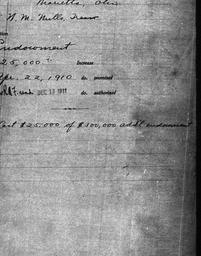 Marietta, Ohio
W. M. Mills, Treas
Endowment
25,000
Increase
Apr. 22, 1910 do. promised
DEC 13 1911 do. authorized
Last $25,000 of $300,000 addl endowment